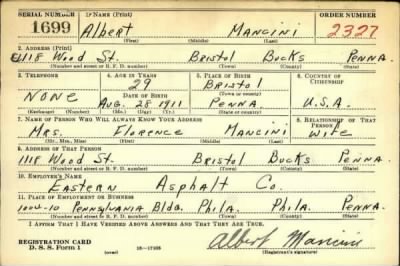 SERIAL NUMBER 1. NAME (Print) ORDER NUMBER
1699 Albert Mancini 2327
(First) (Middle) (Last)
2. ADDRESS (Print)
1118 Wood St. Bristol Bucks Penna.
(Number and street or R. F. D. number) (Town) (County) (State)
3. TELEPHONE 4. AGE IN YEARS 5. PLACE OF BIRTH 6. COUNTRY OF CITIZENSHIP
29 Bristol
None DATE OF BIRTH (Town)
Aug. 28 1911 Penna. U.S.A.
(Exchange) (Number) (Mo.) (Day) (Yr.) (State or country)
7. NAME OF PERSON WHO WILL ALWAYS KNOW YOUR ADDRESS 8. RELATIONSHIP OF THAT PERSON
Mrs. Florence Mancini Wife
(Mr., Mrs., Miss) (First) (Middle) (Last)
9. ADDRESS OF THAT PERSON
1118 Wood St. Bristol Bucks Penna.
(Number and street or R. F. D. number) (Town) (County) (State)
10. EMPLOYER'S NAME
Eastern Asphalt Co.
11. PLACE OF EMPLOYMENT OR BUSINESS
Pennsylvania Bldg. Phila. Phila. Penna.
(Number and street or R. F. D. number) (Town) (County) (State)
I AFFIRM THAT I HAVE VERIFIED ABOVE ANSWERS AND THAT THEY ARE TRUE.
REGISTRATION CARD
D. S. S. Form 1 (over) Albert Mancini
(Registrant's signature)